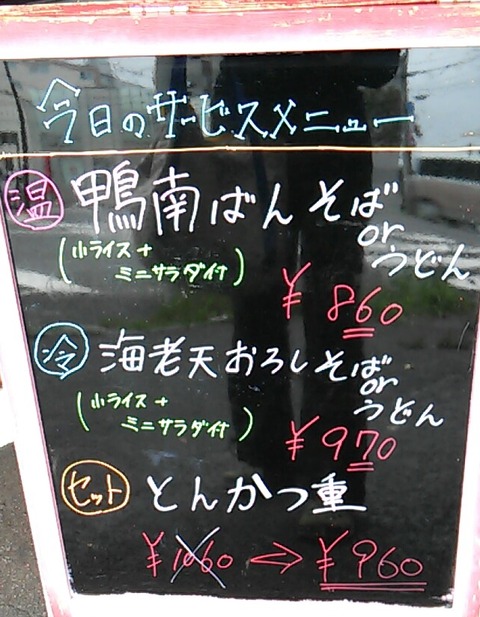 今日のサービスメニュー
温 鴨南ばんそば
or
うどん
(小ライス+
ミニサラダ付)
¥860
冷 海老天おろしそば
or
うどん
(小ライス+
ミニサラダ付)
¥970
セット とんかつ重
¥1060→¥960